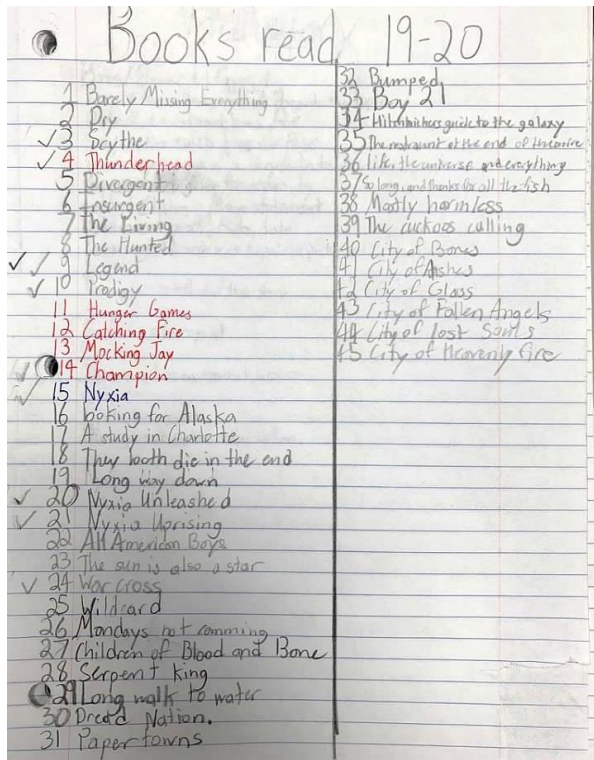 Books read 19-20
1 Barely Missing Everything
2 Dry
✓3 Scythe
✓4 Thunderhead
5 Divergent
6 Insurgent
7 The Living
8 The Hunted
✓✓9 Legend
✓10 Prodigy
11 Hunger Games
12 Catching Fire
13 Mocking Jay
✓14 Champion
✓15 Nyxia
16 looking for Alaska
17 A study in Charlotte
18 They both die in the end
19 Long way down
✓20 Nyxia Unleashed
✓21 Nyxia Uprising
22 All American Boys
23 The sun is also a star
✓24 Warcross
25 Wildcard
26 Mondays not comming
27 Children of Blood and Bone
28 Serpent King
29 Long walk to water
30 Dread Nation.
31 Paper towns
32 Bumped
33 Boy 21
34 Hitchhickers guide to the galaxy
35 The restraunt at the end of the
36 life the universe and everything
37 So long, and thanks for all the fish
38 Mostly harmless
39 The cuckoos calling
40 City of Bones
41 City of Ashes
42 City of Glass
43 City of Fallen Angels
44 City of lost Souls
45 City of Heavenly fire